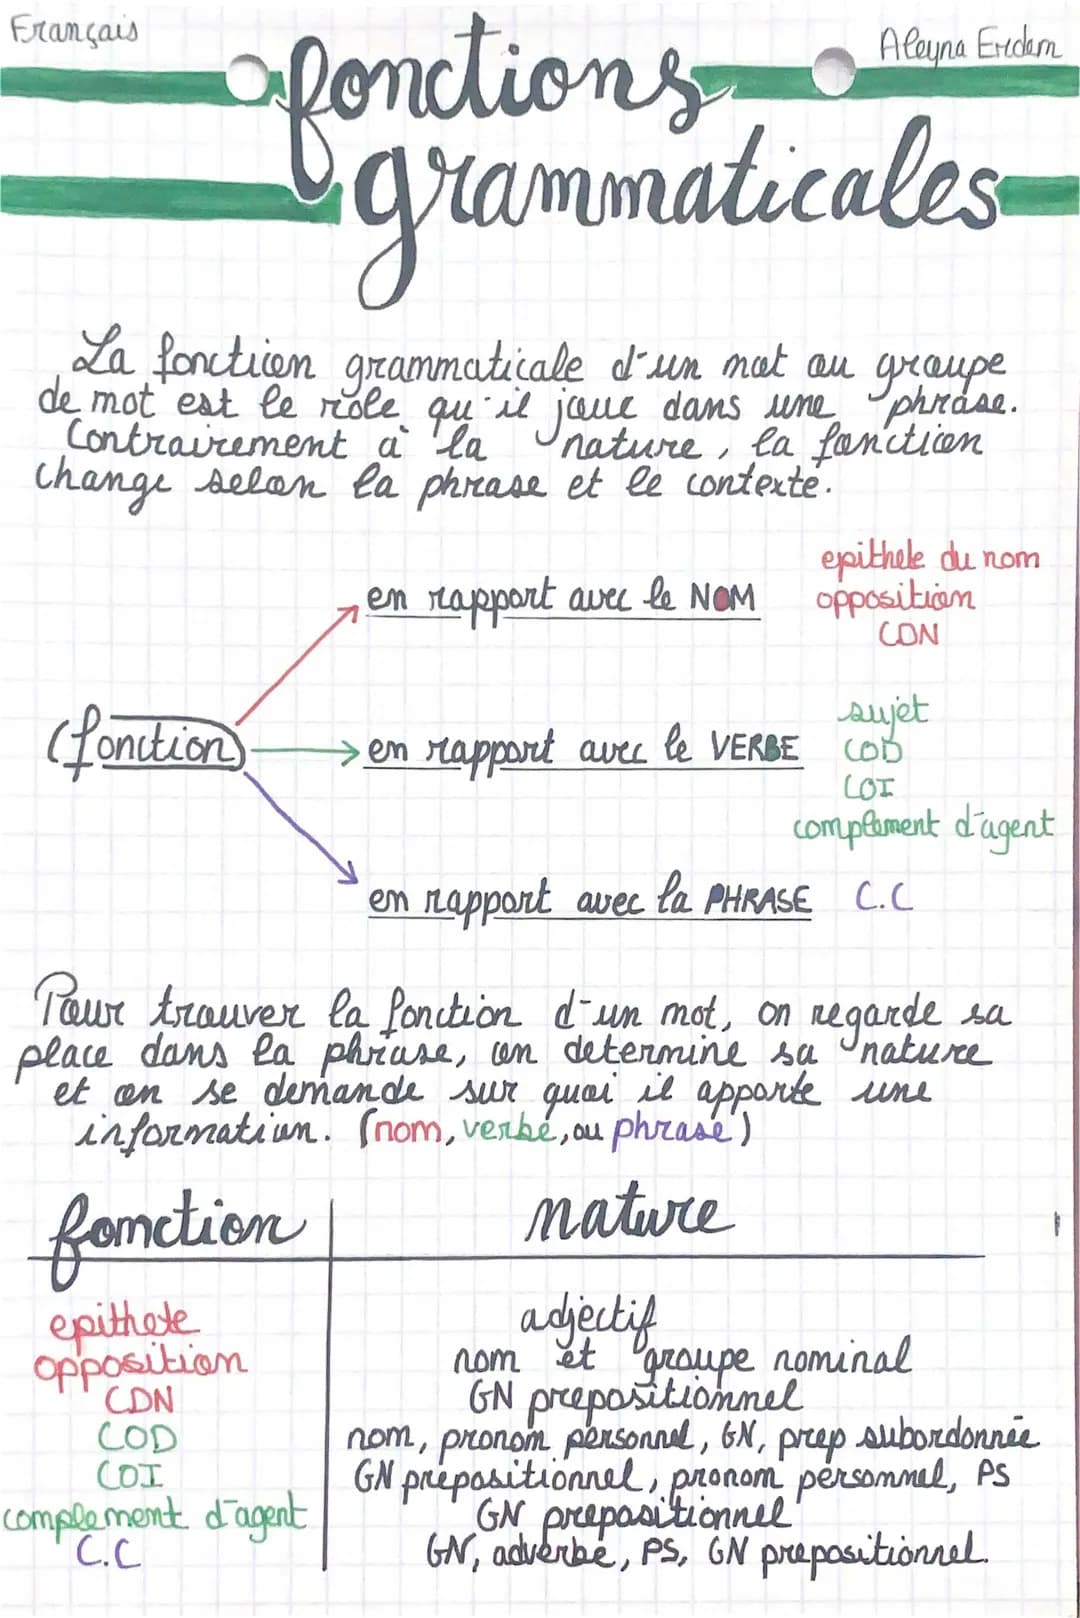 Français
Aleyna Erdem
fonctions
grammaticales
La fonction grammaticale d'un mot ou groupe
de mot est le rôle qu'il joue dans une phrase.
Contrairement à la nature, la fonction
change selon la phrase et le contexte.
epithete du nom
en rapport avec le NOM
opposition
CDN
sujet
fonction
en rapport avec le VERBE
COD
COI
complement d'agent
en rapport avec la PHRASE C.C
Pour trouver la fonction d'un mot, on regarde sa
place dans la phrase, on determine sa nature
et on se demande sur quoi il apporte une
information. (nom, verbe, ou phrase)
fonction nature
epithete adjectif
opposition nom et groupe nominal
CDN GN prepositionnel
COD nom, pronom personnel, GN, prep subordonnée
COI GN prepositionnel, pronom personnel, PS
complement d'agent GN prepositionnel
C.C GN, adverbe, PS, GN prepositionnel.